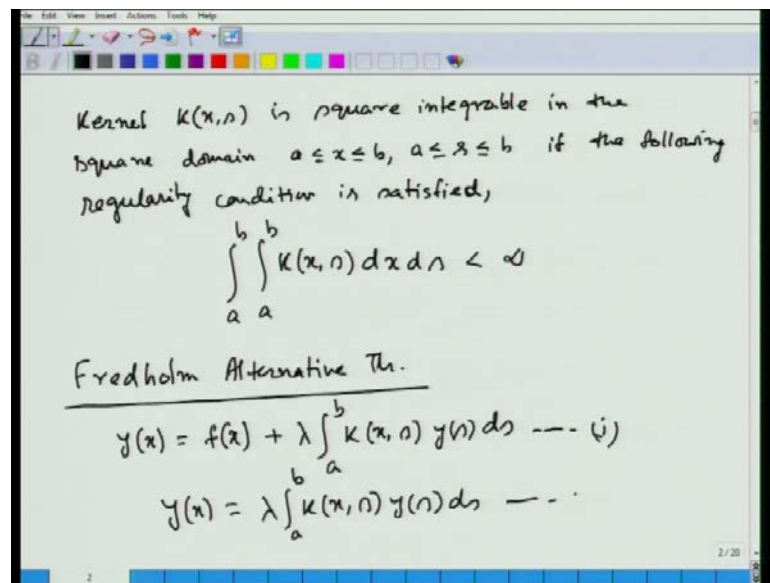 File Edit View Insert Actions Tools Help
Kernel K(x,s) is square integrable in the
square domain a ≤ x ≤ b, a ≤ s ≤ b if the following
regularity condition is satisfied,
∫_a^b ∫_a^b K(x,s) dx ds < ∞
Fredholm Alternative Th.
y(x) = f(x) + λ∫_a^b K(x,s) y(s) ds ---- (i)
y(x) = λ∫_a^b K(x,s) y(s) ds -- - .
2/20
2